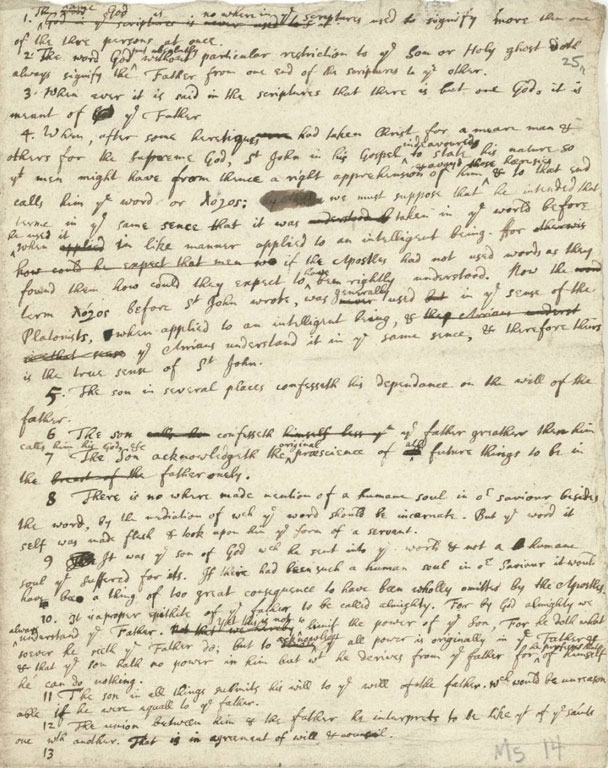 1. The word God is no where in yͤ scriptures used to signify more then one
of the thre persons at once.
2 The word God put absolutly without particular restriction to yͤ Son or Holy ghost doth
always signify the Father from one end of the scriptures to yͤ other. 25
3. When ever it is said in the scriptures that there is but one God, it is
meant of yͤ Father
4. When, after some heretiques had taken Christ for a meare man &
others for the supreme God, Sᵗ John in his Gospel indeavoured to state his nature so
yᵗ men might have from thence a right apprehension of him & avoyd those haeresies & to that end
calls him yͤ word or λογος: we must suppose that he intended that
terme in yͤ same sence that it was taken in yͤ world before
he used it when in like manner applied to an intelligent being. For
if the Apostles had not used words as they
found them how could they expect to have been rightly understood. Now the
term λογος before Sᵗ John wrote, was generally used in yͤ sense of the
Platonists, when applied to an intelligent being, &
yͤ Arrians understand it in yͤ same sence, & therefore theirs
is the true sense of Sᵗ John.
5. The son in several places confesseth his dependance on the will of the
father.
6 The son confesseth yͤ father greater then him
calls him his God &c
7 The Son acknowledgeth the original præscience of all future things to be in
the father onely.
8 There is no where made mention of a humane soul in oʳ saviour besides
the word, by the mediation of wᶜʰ yͤ word should be incarnate. But yͤ word it
self was made flesh & took upon him yͤ form of a servant.
9 It was yͤ son of God wᶜʰ he sent into yͤ world & not a humane
soul yᵗ suffered for us. If there had been such a human soul in oʳ Saviour it would
have been a thing of too great consequence to have been wholly omitted by the Apostles.
10. It is a proper epithite of yͤ father to be called almighty. For by God almighty we
always understand yͤ Father. Yet this is not to limit the power of yͤ Son, For he doth what
soever he seeth yͤ Father do; but to acknowledg yᵗ all power is originally in yͤ Father &
that yͤ son hath no power in him but wᵗ he derives from yͤ father for he professes that of himself
he can do nothing.
11 The son in all things submits his will to yͤ will of the father. wᶜʰ would be unreason
able if he were equall to yͤ father.
12 The union between him & the father he interprets to be like yᵗ of yͤ saints
one wᵗʰ another. That is in agreement of will & counsil.
13
MS 14